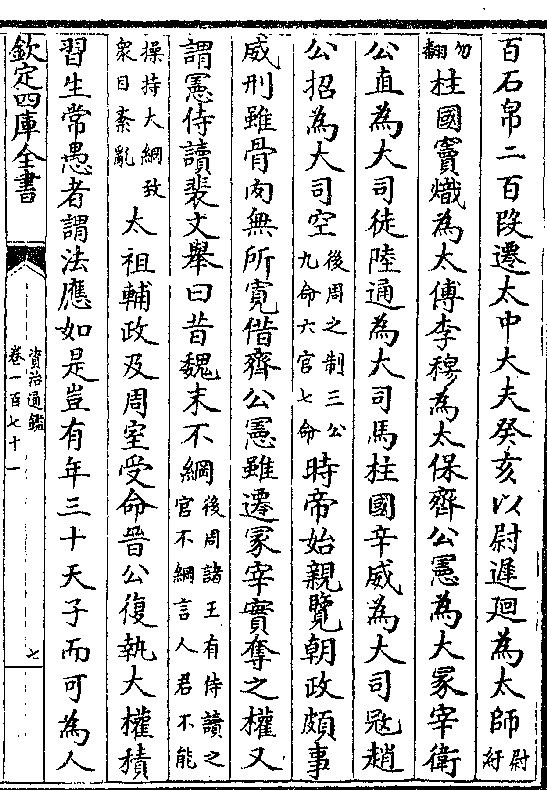 百石帛二百段遷太中大夫癸亥以尉遲廻為太師尉紆
勿翻柱國竇熾為太傅李穆為太保齊公憲為大冢宰衛
公直為大司徒陸通為大司馬柱國辛威為大司冦趙
公招為大司空後周之制三公九命六官七命時帝始親覽朝政頗事
威刑雖骨肉無所寛借齊公憲雖遷冢宰實奪之權又
謂憲侍讀裴文舉曰昔魏末不綱後周諸王有侍讀之官不綱言人君不能
操持大綱致衆目紊亂太祖輔政及周室受命晉公復執大權積
習生常愚者謂法應如是豈有年三十天子而可為人
欽定四庫全書
資治通鑑
卷一百七十一
七